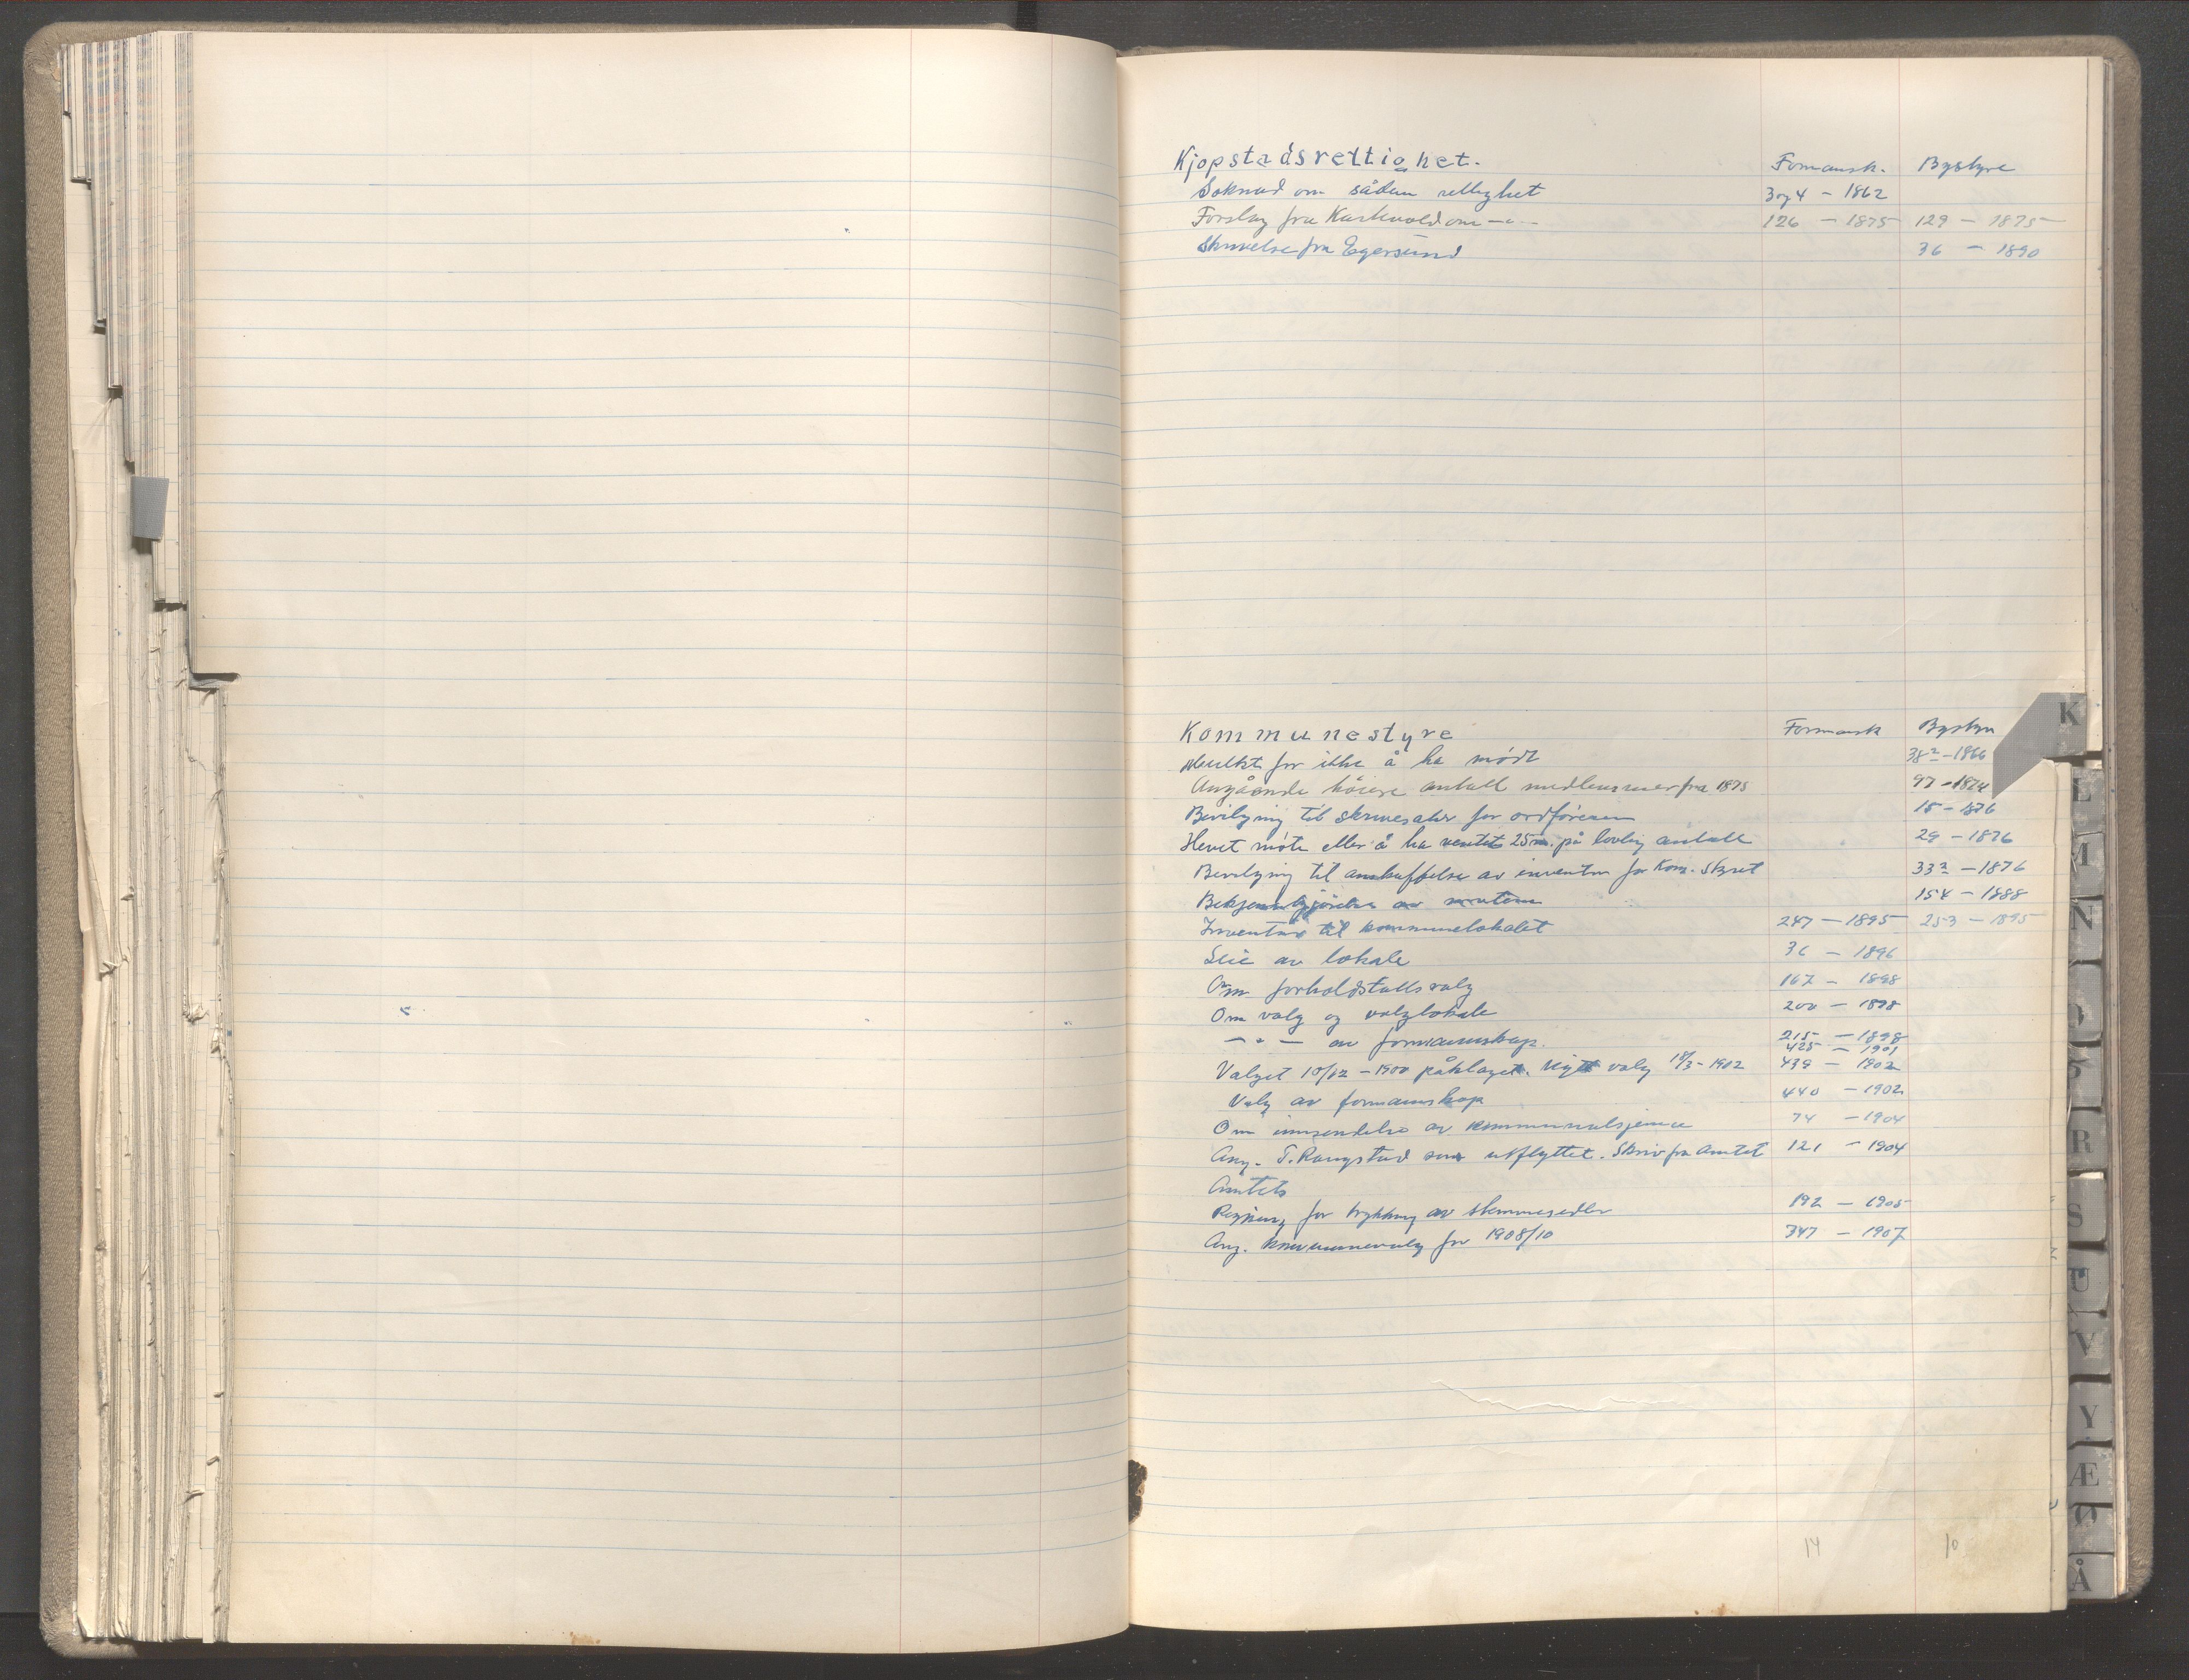 Kjøpstadsrettighet. Formansk. Bystyre
Søknad om sådan rettighet 3 og 4 - 1862
Forslag fra om -"- 126 - 1875 129 - 1875
Skrivelse fra Egersund 36 - 1890
Kommunestyre Formansk Bystyre
Mulkt for ikke å ha mødt 38² - 1866
Angående høiere antall medlemmer fra 1875 97 - 1874
Bevilgning til skrivesaker for ordføreren 15 - 1876
Hevet møte efter å ha ventet 25 m. på lovlig antall 29 - 1876
Bevilgning til anskaffelse av inventar for Kom. Styret 33² - 1876
Bekjentgjørelse av møtene 154 - 1888
Inventar til kommunelokalet 247 - 1895 253 - 1895
Leie av lokale 36 - 1896
Om forholdstallsvalg 167 - 1898
Om valg og valglokale 200 - 1898
-"- av formannskap. 215 - 1898
425 - 1901
Valget 10/12 - 1900 påklaget. Nytt valg 18/3 - 1902 439 - 1902
Valg av formannskap 440 - 1902
Om innsendelse av 74 - 1904
Ang. T. Rangstad som utflyttet. Skriv fra Amtet 121 - 1904
Amtets
Regning for trykking av stemmesedler 192 - 1905
Ang. kommunevalg for 1908/10 347 - 1907
14 10
K
L
M
N
O
P
R
S
U
V
Y
Æ
Ø
Å